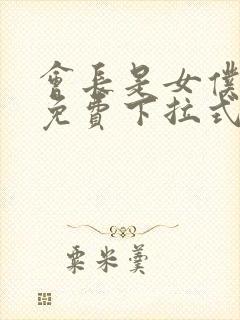 會長是女僕
免費下拉式
粟米羹